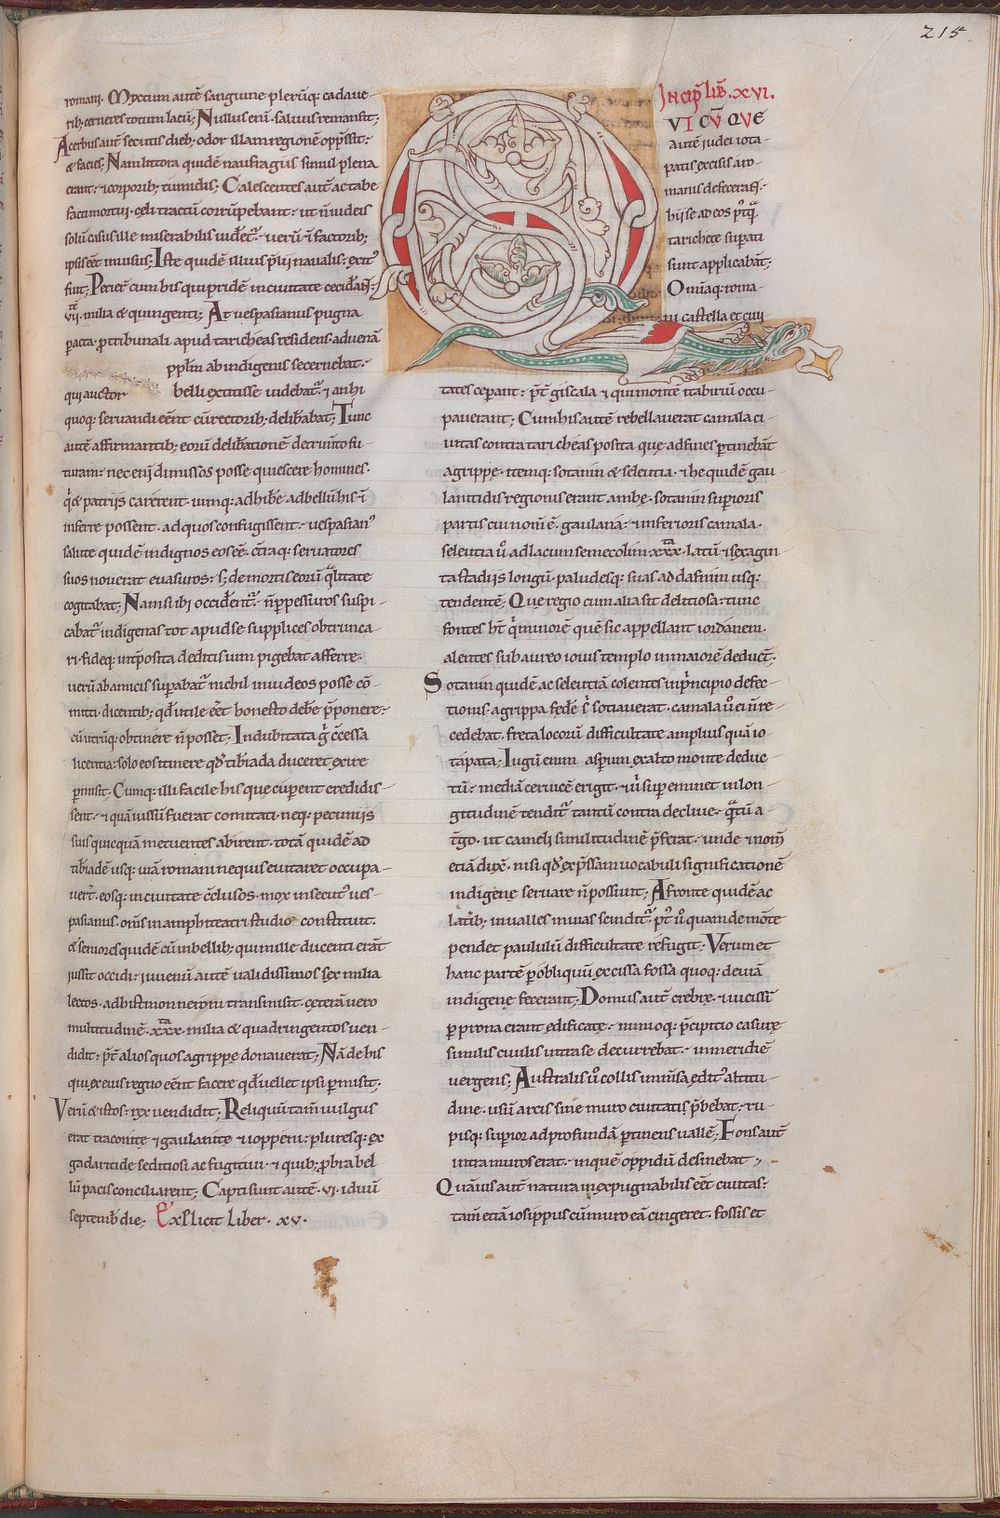 215
romani. Myxtum autē sanguine plerūq; cadaue-
rib; cerneres totum lacū; Nullus enī saluus remansit;
Acerbus aut̄ secutis dieb; odor illam regionē opp̄ssit;
& facies; Nam littora quidē naufragiis simul plena
erant; & corporib; tumidis; Calescentes aut̄ ac tabe
facti mortui celi tractū corrūpebant; ut ñ iudeis
solū casus ille miserabilis uideret̄; uerū & factorib;
ipsis eēt inuisus; Iste quidē illius p̄lii naualis exit̄
fuit; Perier̄ cum his qui pridē in ciuitate ceciderāt
vii. milia & quingenti; At uespasianus pugna
pacta p̄ tribunali apud taricheas residens aduenā
pp̄lm ab indigenis secernebat.
qui auctor belli extitisse uidebat̄ & an hi
quoq; seruandi eēnt cū rectorib; delib̄abat; Tunc
autē affirmantib; eorū delib̄ationē detrim̄to fu-
turam nec enī dimissos posse quiescere homines.
q̄ & patriis carerent uimq; adhib̄e ad bellū his ī
inferre possent. ad quos confugissent uespasian⁹
salute quidē indignos eos eē. c̄traq; seruatores
suos nouerat euasuros; s; de mortis eorū q̄litate
cogitabat; Nam si ibi occiderent̄ ñ p̄pessuros suspi-
cabat̄ indigenas tot apud se supplices obtrunca-
ri. fideq; int̄posita deditis uim pigebat afferre.
uerū ab amicis sup̄abat̄ nichil in iudeos posse cō-
mitti dicentib; qd̄ utile eēt honesto deb̄e p̄ponere.
cū utrūq; obtinere ñ posset. Indubitata ḡ c̄cessa
licentia; solo eos itinere qd̄ tib̄iada duceret exire
p̄misit; Cumq; illi facile his que cup̄ent credidis-
sent & quā iussū fuerat comitati neq; pecuniis
suis quicquā metuentes abirent. totā quidē ad
tib̄iadē usq; uiā romani ne quis euitaret occupa-
uer̄t. eosq; in ciuitate c̄clusos. mox insecut⁹ ues-
pasianus. om̄s in amphiteatri studio constituit.
& seniores quidē cū inbellib; qui mille ducenti erāt
iussit occidi; iuuenū autē ualidissimos sex milia
lectos. ad histmon neroni transmisit. ceterā uero
multitudinē .xxx. milia & quadringentos uen-
didit; p̄t alios quos agrippe donauerat; Nā de his
qui ex eius regno eēnt facere qd̄ uellet ipsi p̄misit.
Verū & istos rex uendidit; Reliquū tam̄ uulgus
erat traconite & gaulanite & ioppeni. pluresq; ex
gadaritide seditiosi ac fugitiui & quib; p̄bra bel
lū pacis conciliarent; Capti sunt autē .vi. iduū
septemb̄ die; Explicit liber .xv.
Incip̄ lib̄ .xvi.
VI CŪ QVE
autē iudei iota-
patis excisis a ro-
manis defecerāt
hi se ad eos p̄tq̄
tarichete sup̄ati
sunt applicabāt;
Om̄iaq; roma-
ni castella et ciui
tates cep̄ant; p̄t giscala & qui montē itabiriū occu-
pauerant; Cum his autē rebellauerat camala ci-
uitas contra taricheas posita que ad fines p̄tinebāt
agrippe. itemq; sotanin & seleucia. & he quidē gau-
lanitidis regionis erant ambe. sotanin sup̄ioris
partis cui nom̄ ē. gaulana; & inferioris camala.
seleucia ū ad lacum semecolin .xxx. latū & sexagin-
ta stadiis longū. paludesq; suas ad dafnim usq;
tendentē; Que regio cum alia sit deliciosa; tunc
fontes hr̄t q̄ minorē quē sic appellant iordanem.
alentes sub aureo iouis templo in maiorē deduc̄t;
Sotanin quidē ac seleuciā colentes in p̄ncipio defec-
tionis agrippa fede s̄ sotiauerat. camala ū ei ñ re-
cedebat. freta locorū difficultate amplius quā io-
tapata; Iugū enim asperum ex alto monte deduc-
tū mediā ceruicē erigit & ū sup̄eminet in lon-
gitudinē tendit̄ tantū contra decliue q̄tū a
t̄go. ut cameli similitudinē p̄ferat. unde & nom̄
etiā dux̄. nisi qd̄ exp̄ssam uocabuli significationē
indigene seruare ñ possunt; A fronte quidē ac
laterib; in ualles inuias scindit̄; p̄t ū quam de mōte
pendet paululū difficultate refugit; Verum et
hanc partē p̄ obliquū excissa fossa quoq; deuiā
indigene fecerant; Domus aut̄ crebre & uicissī
p̄ prona erant edificate nimioq; p̄cipitio casure
similis ciuilis intra se decurrebat in meridiē
uergens; Australis ū collis inm̄sa edit⁹ altitu-
dine. usū arcis sine muro ciuitatis p̄bebat; ru-
pisq; sup̄ior ad profundā p̄tinens uallē; Fons aut̄
intra muros erat in quē oppidū desinebat;
Quāuis aut̄ natura inexpugnabilis eēt ciuitas;
tam̄ etiā iosippus cū muro eā cingeret. fossis et